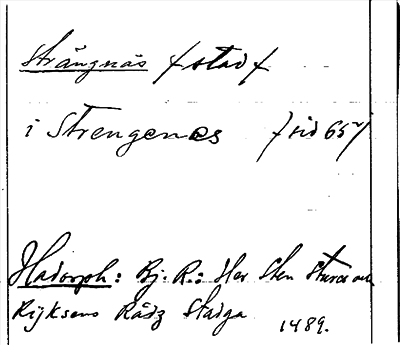 Strängnäs /stad/
i Strengenes /sid 65/
Hadorph: Bj. R.: Her Sten Stures och
Rijksens Rådz Stadga 1489.